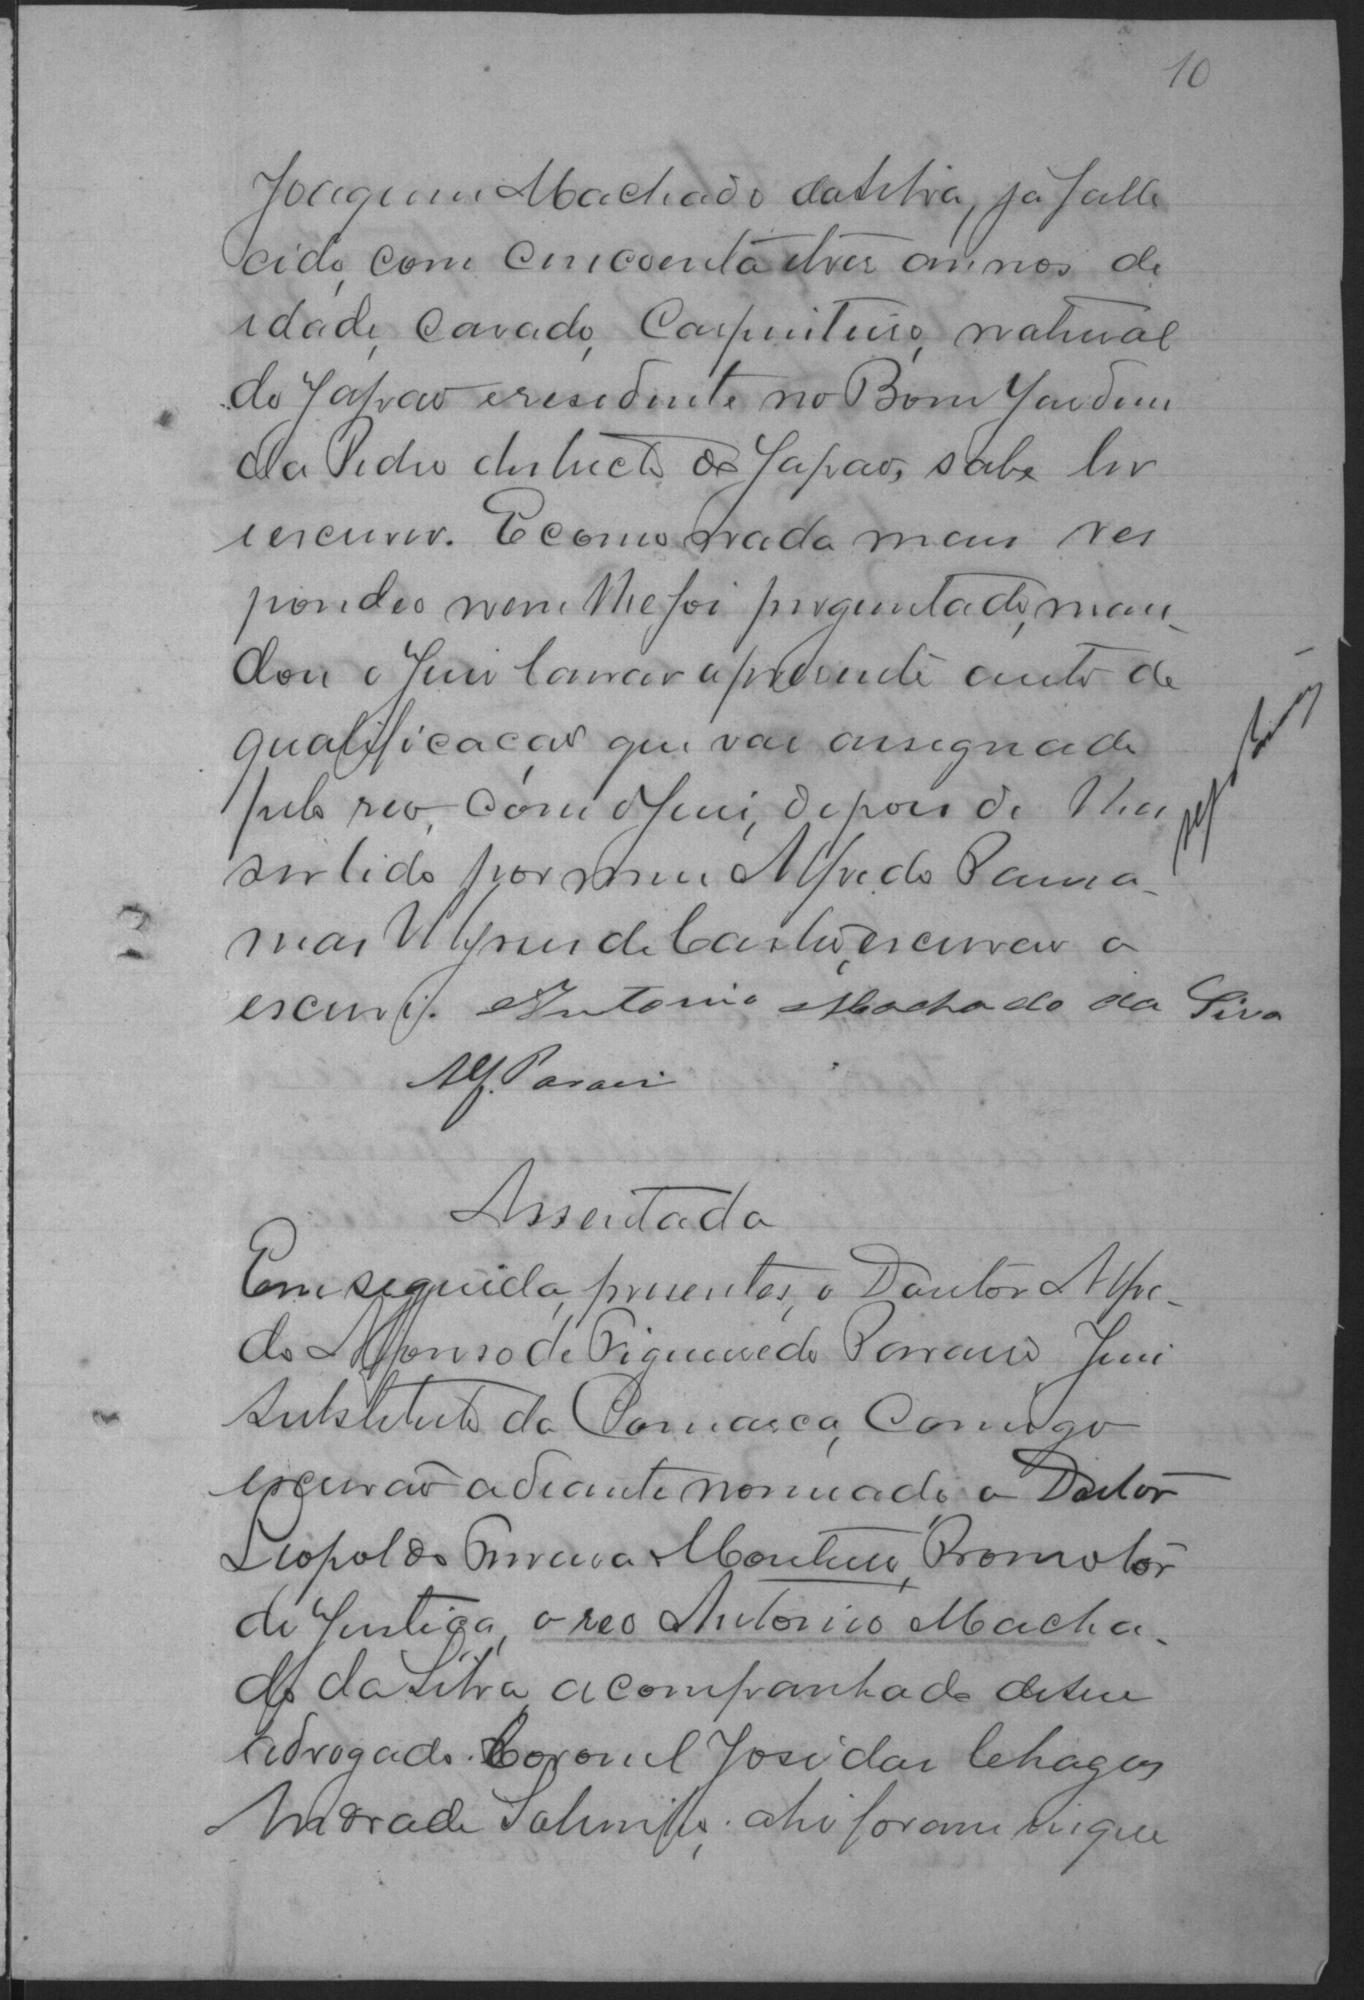 10
Joaquim Machado da Silva, já falle
cido, com cincoenta e tres annos de
idade, casado, Carpinteiro, natural
do Japão e residente no Bom Jardim
da Pedra districto do Japão, sabe ler
e escrever. E como nada mais res
pondeo nem lhe foi preguntado, man-
dou o Juiz lavrar a presente auto de
qualificação que vae assegnado
pelo reo, com o Juiz, depois de lhe
ser lido por mim Alfredo
de Castro, escrivão o
escrivi. Antonio Machado da Siva
Alf. Parani
Assentada
Em seguida, presentes, o Doutor Alfre-
do Affonso de Figueiredo Juiz
Substituto da Comarca, Comigo
escrivão adiante nomeado, o Doutor
Leopoldo Ferreira Monteiro, Promotor
de Justiça, o reo Antonio Macha-
do da Silva, acompanhado de seu
advogado Coronel José das Chagas
Andrade Sobrinho, ahi foram inque